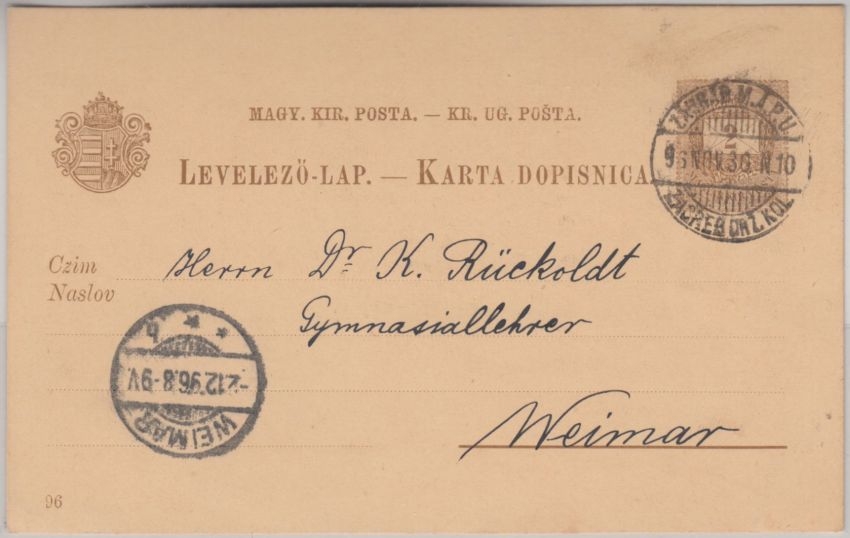 MAGY. KIR. POSTA. — KR. UG. POŠTA.
LEVELEZŐ-LAP. — KARTA DOPISNICA
2
96 NOV. 30 N. 10
ZAGREB DRŽ. KOL.
Czim
Naslov
Herrn Dr K. Rückoldt
Gymnasiallehrer
Weimar
WEIMAR
-2.12.96.8-9V.
* *
96